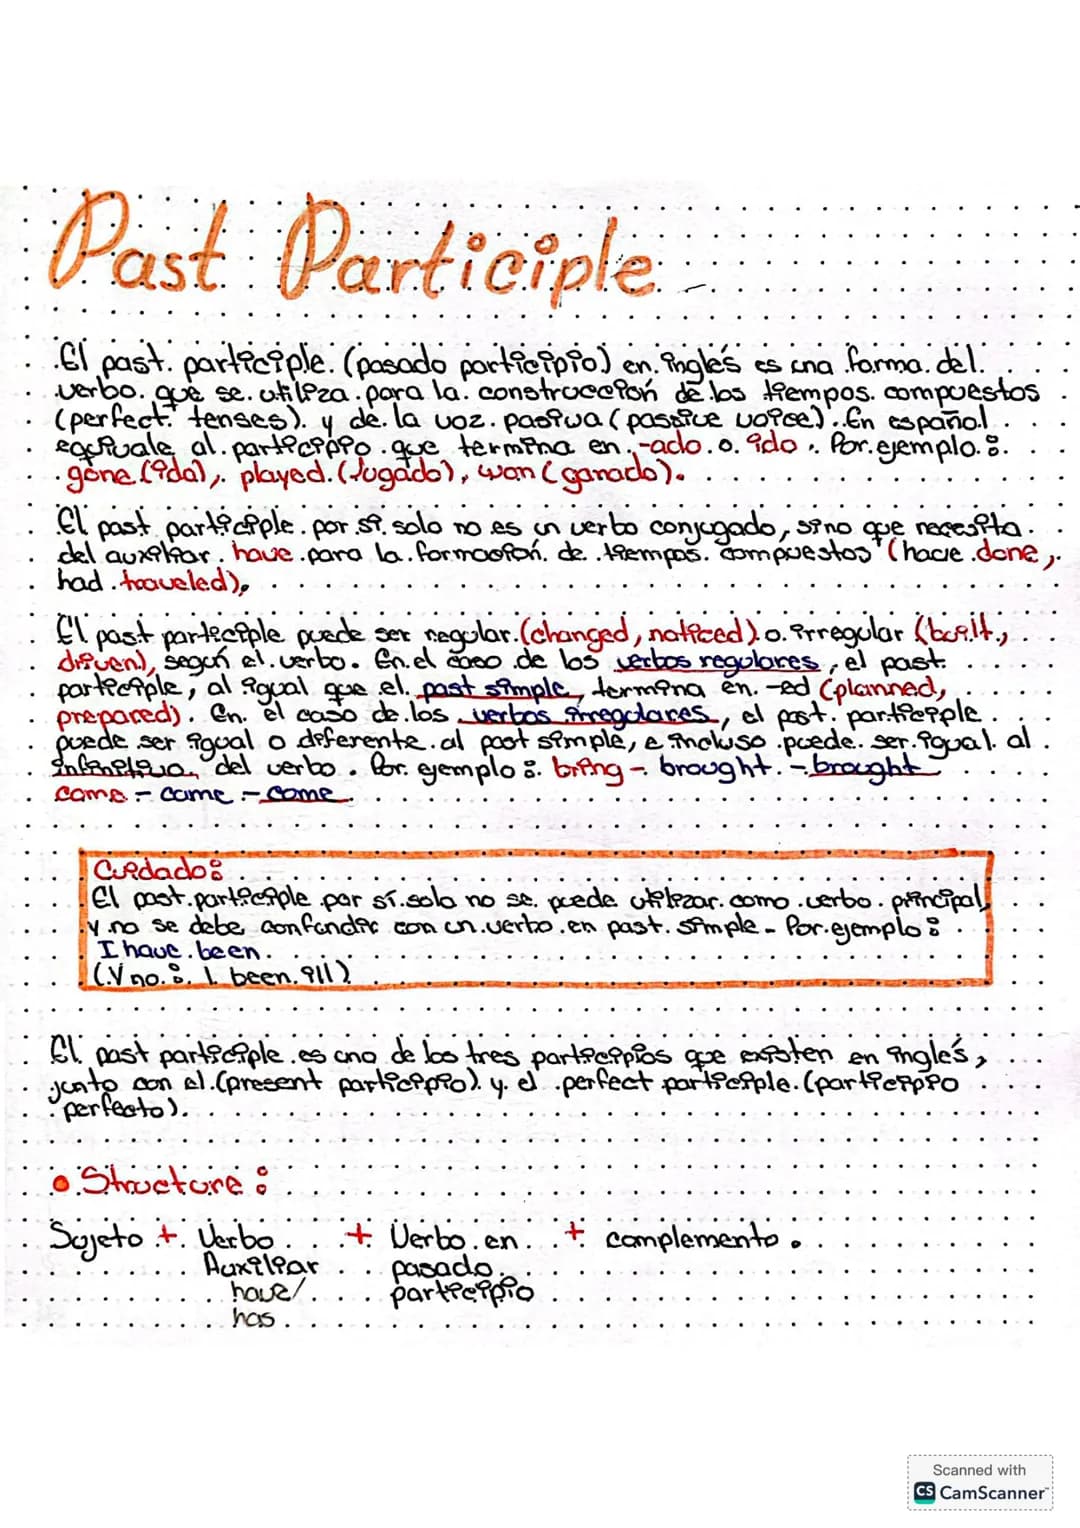 Past Participle
El past participle (pasado participio) en inglés es una forma del
verbo que se utiliza para la construcción de los tiempos compuestos
(perfect tenses) y de la voz pasiva (passive voice). En español
equivale al participio que termina en -ado o ido. Por ejemplo:
gone (ida), played (Jugado), won (ganado).
El past participle por si solo no es un verbo conjugado, sino que necesita
del auxiliar have para la formación de tiempos compuestos (have done,
had traveled).
El past participle puede ser regular (changed, noticed) o irregular (built,
driven), según el verbo. En el caso de los verbos regulares, el past
participle, al igual que el past simple, termina en -ed (planned,
prepared). En el caso de los verbos irregulares, el past participle
puede ser igual o diferente al past simple, e incluso puede ser igual al
infinitivo del verbo. Por ejemplo: bring - brought - brought
come - came - come
Cuidado:
El past participle por sí solo no se puede utilizar como verbo principal,
y no se debe confundir con un verbo en past simple - Por ejemplo:
I have been
(Y no: I been ill)
El past participle es uno de los tres participios que existen en inglés,
junto con el (present participio) y el perfect participle (participio
perfecto).
Structure:
Sujeto + Verbo + Verbo en + complemento.
Auxiliar pasado
have/ participio
has
Scanned with
CS CamScanner